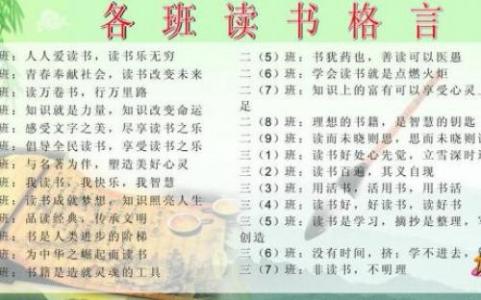 各班读书格言
班：人人爱读书，读书乐无穷
班：青春奉献社会，读书改变未来
班：读万卷书，行万里路
班：知识就是力量，知识改变命运
班：感受文字之美，尽享读书之乐
班：倡导全民读书，享受读书之乐
班：与名著为伴，塑造美好心灵
班：我读书，我快乐，我智慧
班：读书成就梦想，知识照亮人生
班：品读经典，传承文明
班：书是人类进步的阶梯
班：为中华之崛起而读书
班：书籍是造就灵魂的工具
二（5）班：书犹药也，善读可以医愚
二（6）班：学会读书就是点燃火炬
二（7）班：知识上的富有可以享受心灵上
足
二（8）班：理想的书籍，是智慧的钥匙
二（9）班：读而未晓则思，思而未晓则
三（1）班：读书好处心先觉，立雪深时
三（2）班：读书百遍，其义自现
三（3）班：用活书，活用书，用好书
三（4）班：好读书，读好书，读书好
三（5）班：读书是学习，摘抄是整理，写
创造
三（6）班：没有时间，挤；学不进去，
三（7）班：非读书，不明理